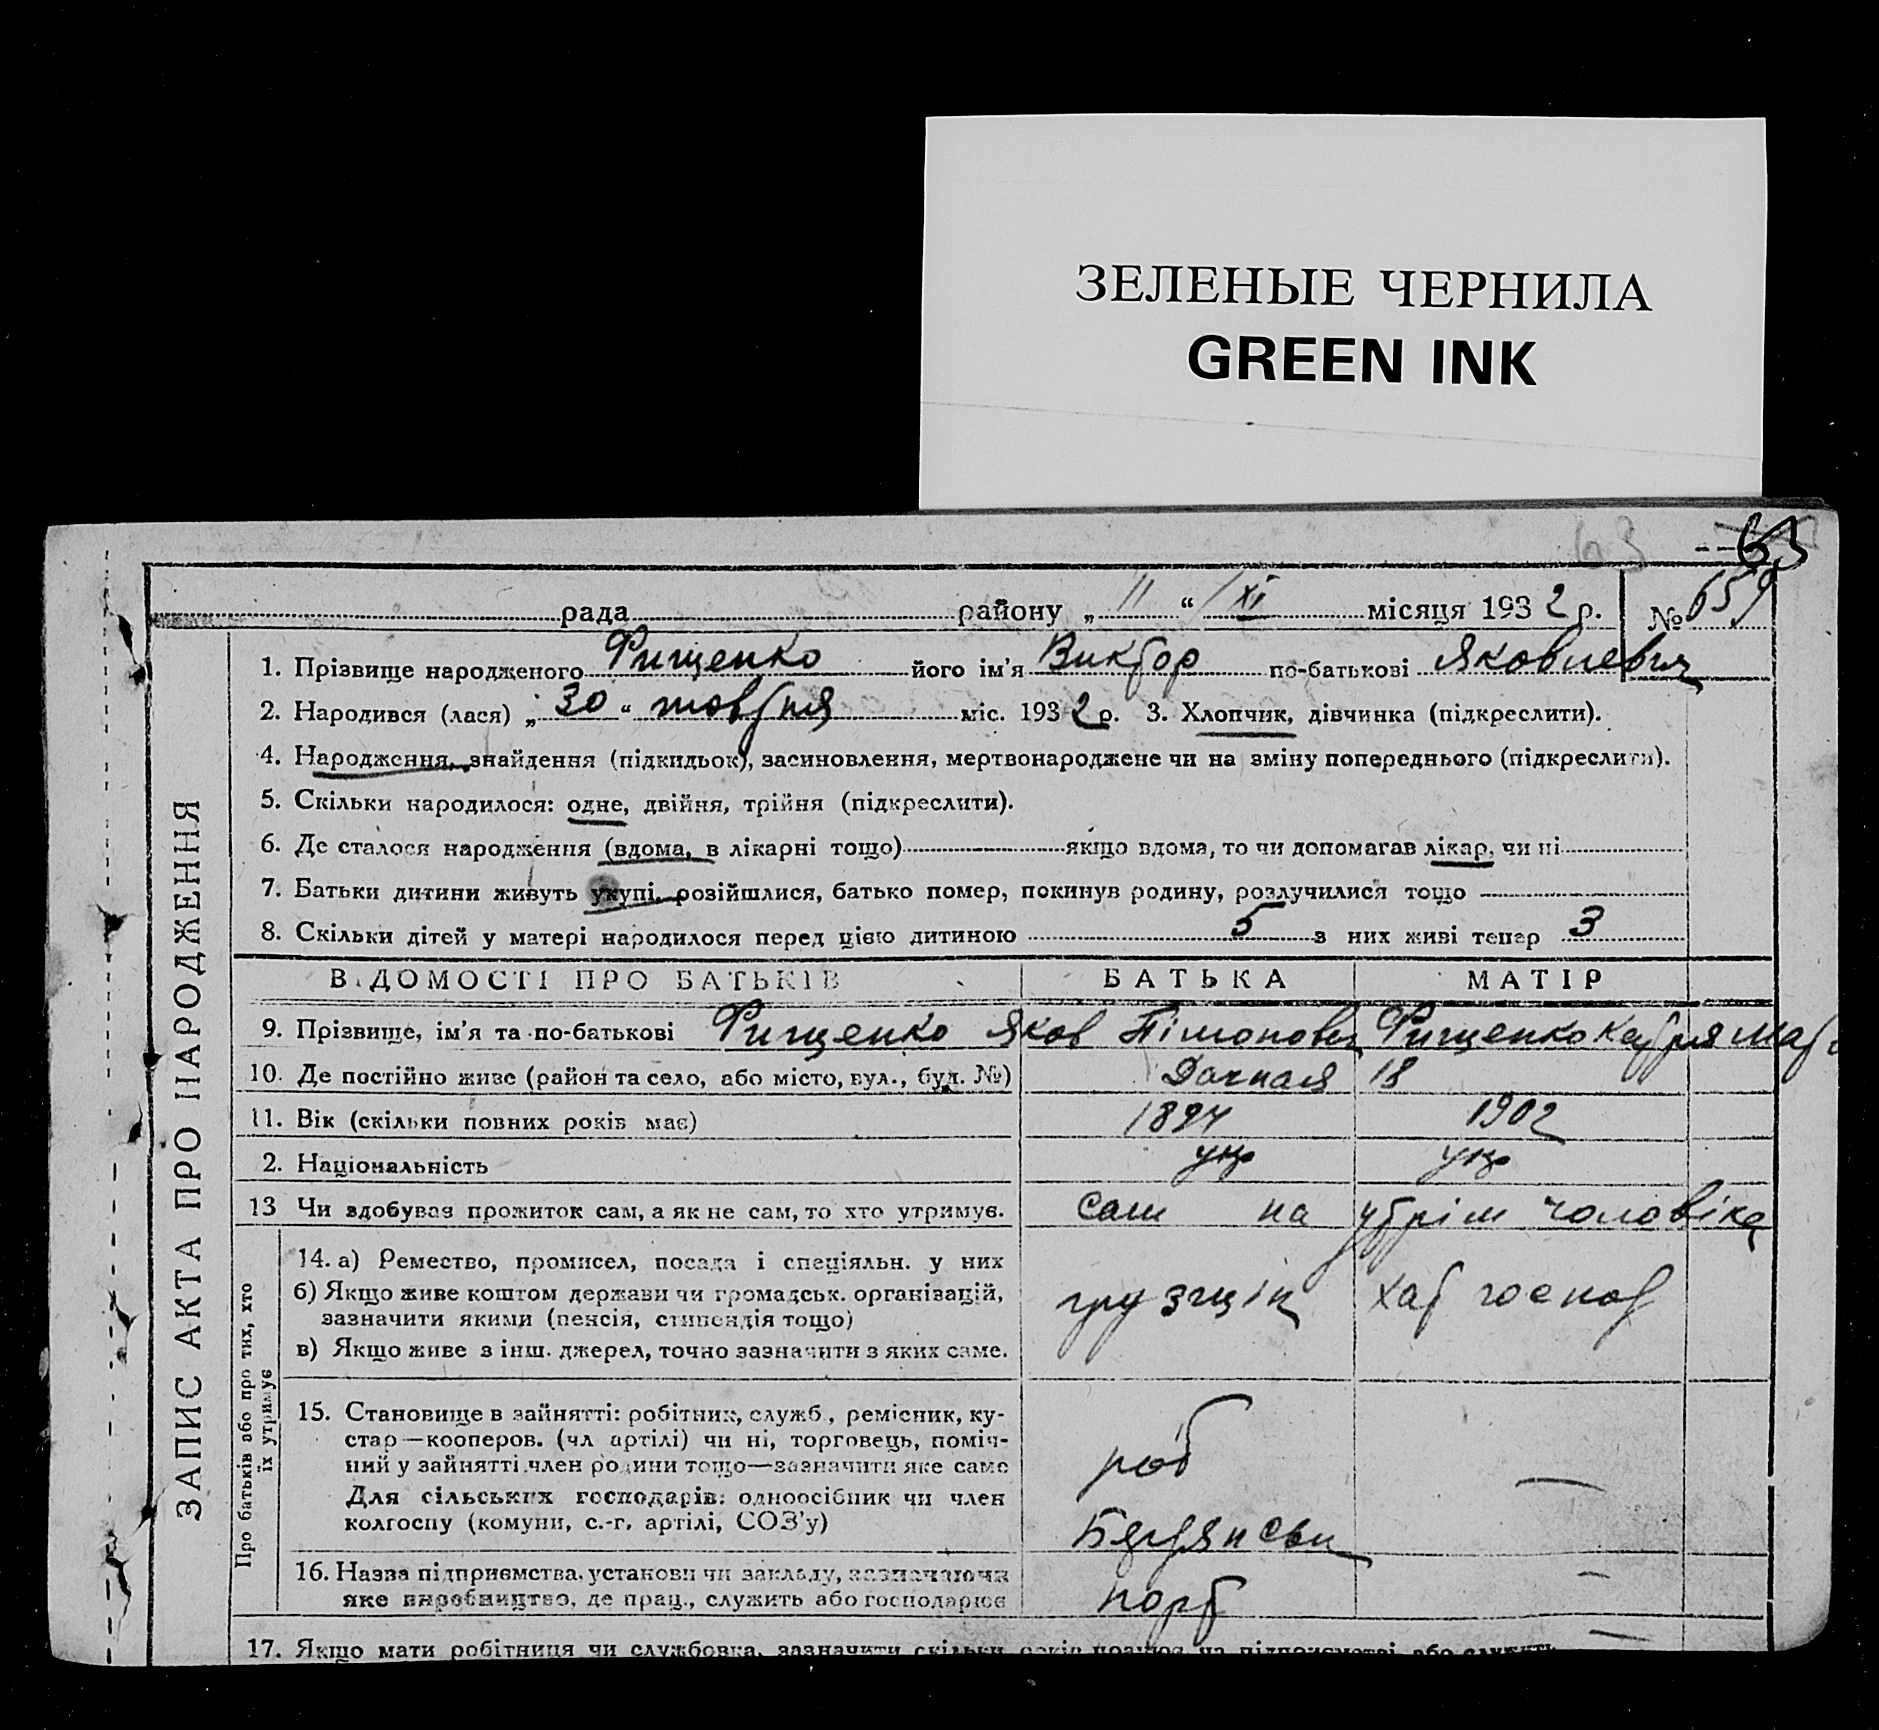 ЗЕЛЕНЫЕ ЧЕРНИЛА
GREEN INK
63
63
рада района „ 11 “ XI місяця 1932 р. № 659
1. Прізвище народженого Фищенко його ім’я Виктор по-батькові Яковлевич
2. Народився (лася) „ 30 “ жовтня міс. 1932 р. 3. Хлопчик, дівчинка (підкреслити).
4. Народження, знайдення (підкидьок), засиновлення, мертвонароджене чи на зміну попереднього (підкреслити).
5. Скільки народилося: одне, двійня, трійня (підкреслити).
6. Де сталося народження (вдома, в лікарні тощо) якщо вдома, то чи допомагав лікар, чи ні
7. Батьки дитини живуть укупі, розійшлися, батько помер, покинув родину, розлучилися тощо
8. Скільки дітей у матері народилося перед цією дитиною 5 з них живі тепер 3
ВІДОМОСТІ ПРО БАТЬКІВ БАТЬКА МАТІР
9. Прізвище, ім’я та по-батькові Фищенко Яков Фищенко
10. Де постійно живе (район та село, або місто, вул., буд. №) Дачная 18
11. Вік (скільки повних років має) 1902
2. Національність укр укр
13 Чи здобуває прожиток сам, а як не сам, то хто утримує. сам на утрім чоловіка
14. а) Ремество, промисел, посада і спеціяльн. у них
б) Якщо живе коштом держави чи громадськ. організацій,
зазначити якими (пенсія, стипендія тощо)
грузщік хат госпот
в) Якщо живе з інш. джерел, точно зазначити з яких саме.
15. Становище в зайнятті: робітник, служб., ремісник, ку-
стар—кооперов. (чл артілі) чи ні, торговець, поміч-
ний у зайнятті член родини тощо—зазначити яке саме
роб —
Для сільських господарів: одноосібник чи член
колгоспу (комуни, с.-г. артілі, СОЗ’у)
16. Назва підприємства, установи чи закладу, зазначаючи
яке виробництво, де прац., служить або господарює
порт —
17. Якщо мати робітниця чи службовка, зазначити скільки років працює на підприємстві або служить —
ЗАПИС АКТА ПРО НАРОДЖЕННЯ
Про батьків або про тих, хто
їх утримує